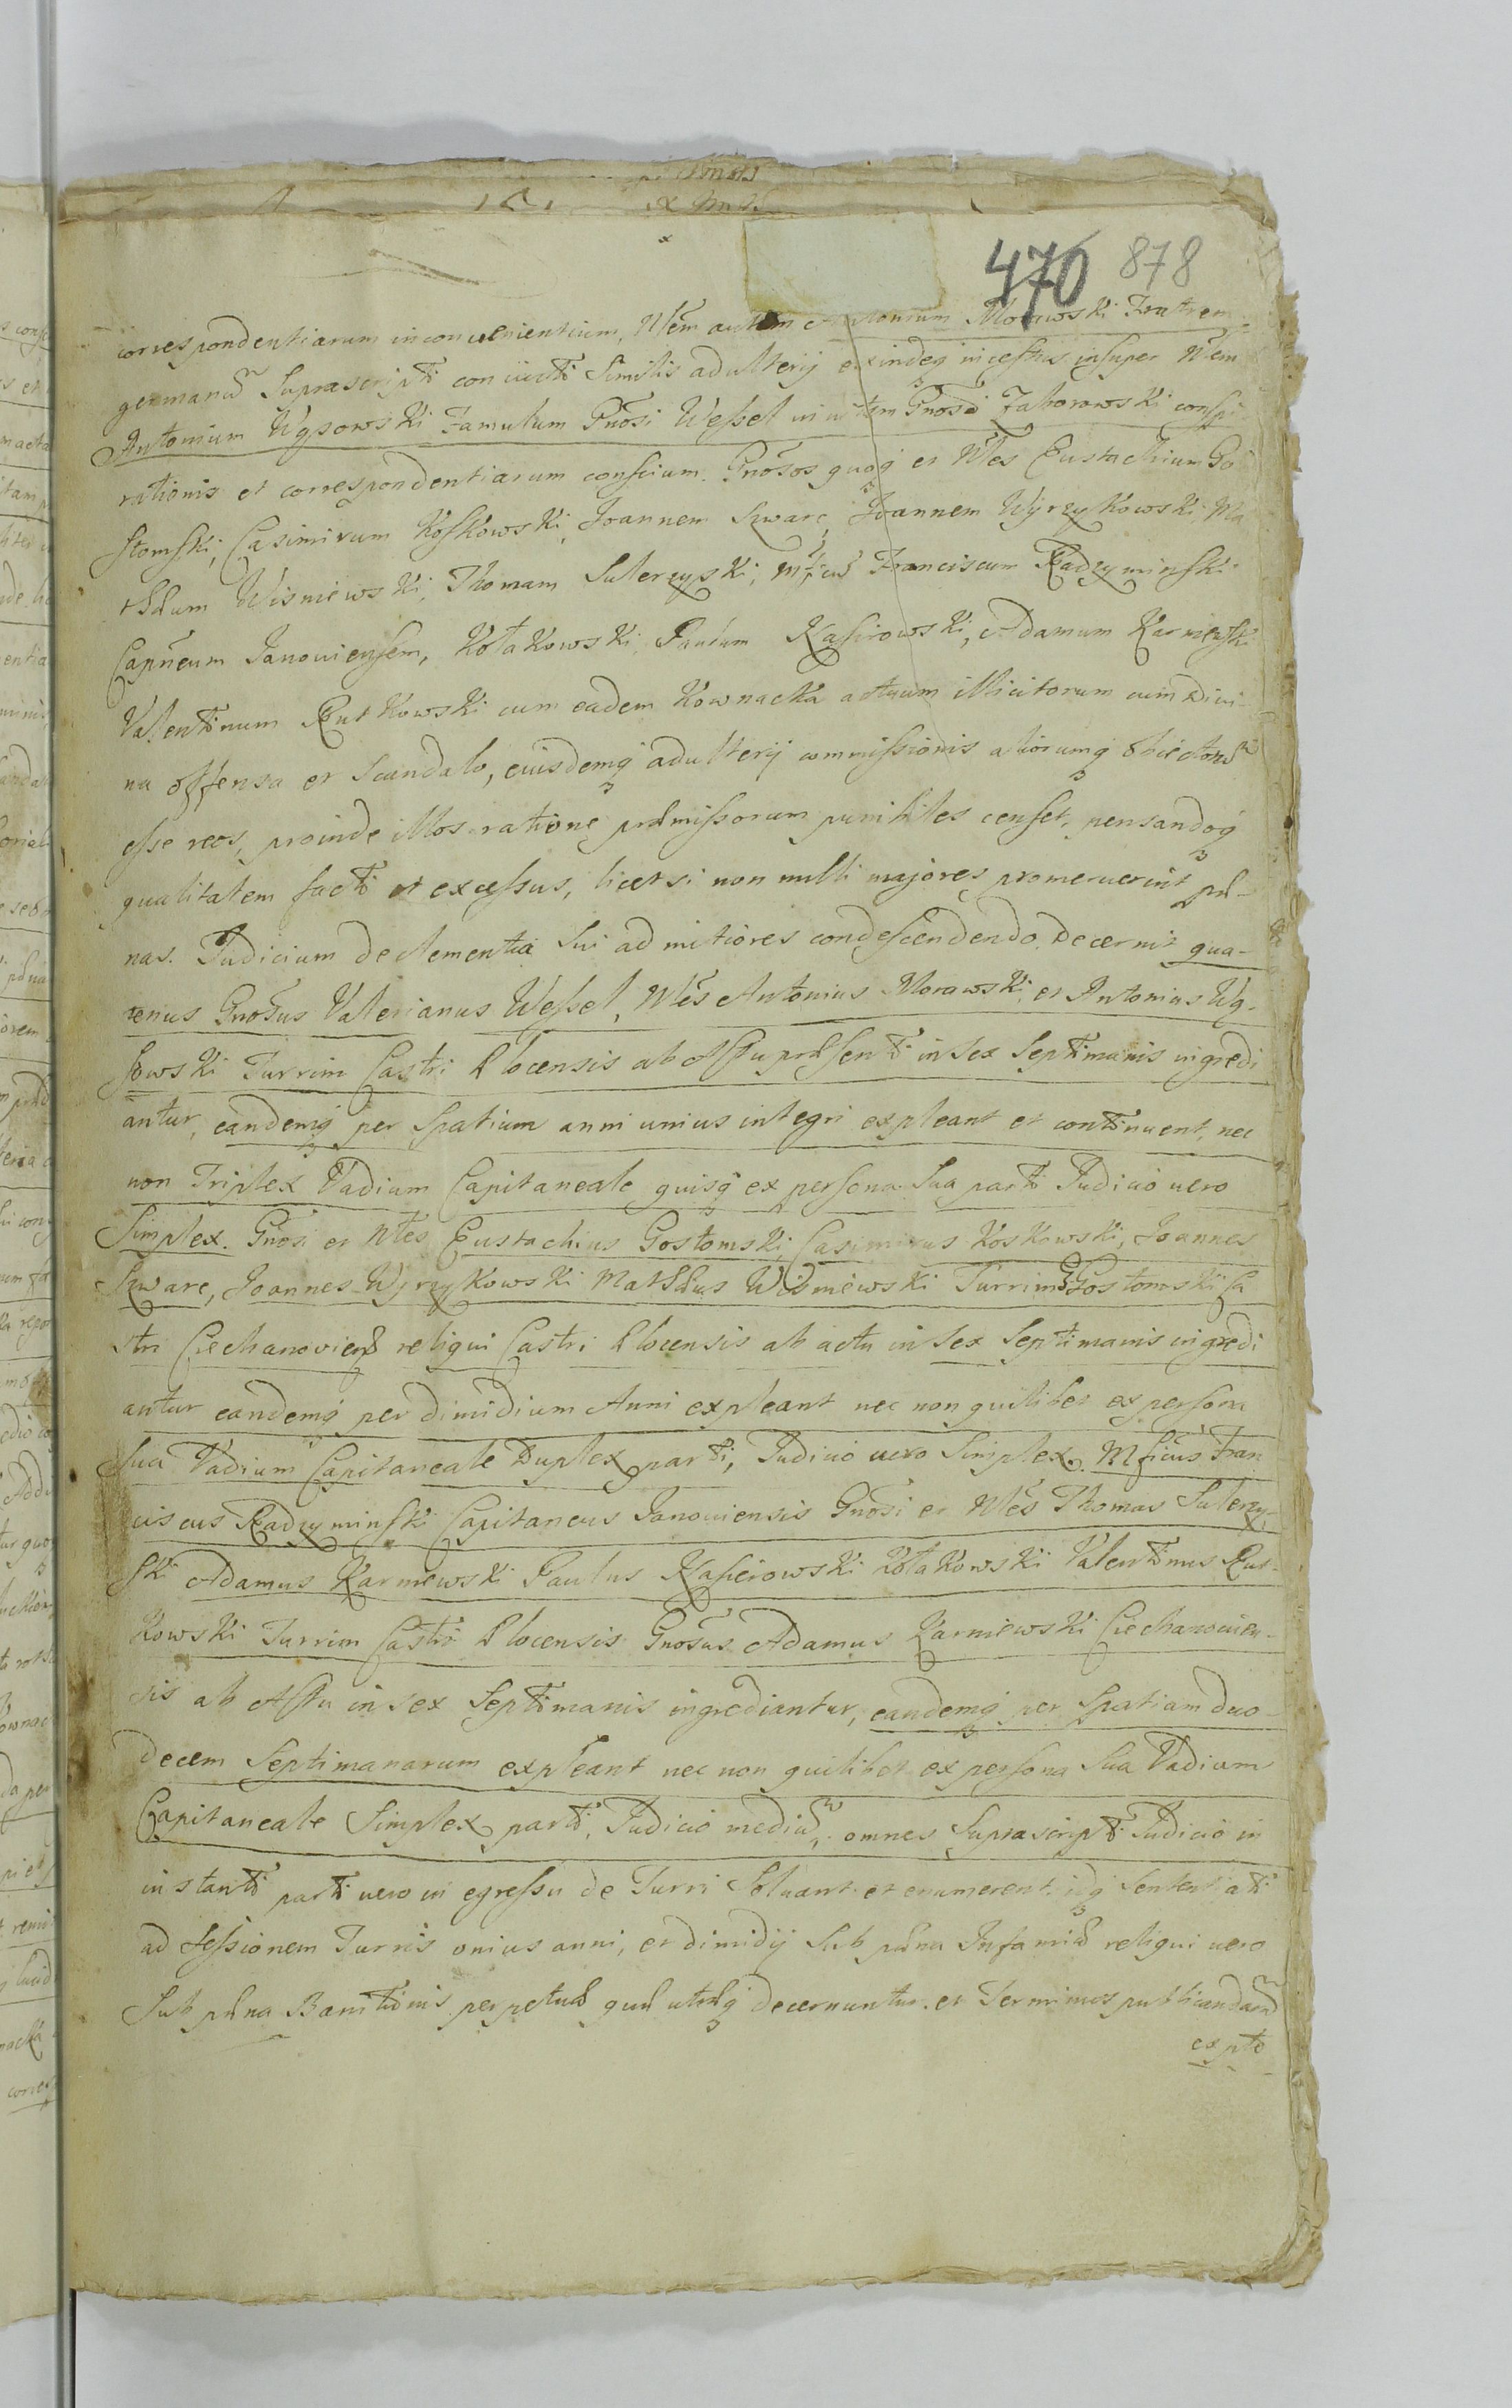 470 878
correspondentiarum inconvenientium, Nlẽm autem Antonium Morawski Fratrem
germanũ Suprascripti convicti Similis adulterij exindeq incestus insuper Nlẽm
Antonium Wąsowski Famulum Gnõsi Wessel in vitam Gnõsi Zaborowski conspi
rationis et correspondentiarum conscium. Gnõsos quoq et Nlẽs Eustachium Go
stomski, Casimirum Koskowski, Joannem Szwarc, Joannem Wyrzykowski, Ma
thæum Wisniewski, Thomam Sulerzyski, Mficũ Franciscum Radzyminski
Capñeum Janoviensem, Kołakowski, Paulum Kasirowski, Adamum Karniewski
Valentinum Rutkowski cum eadem Kownacka actuum illicitorum cum divi-
na offensa et Scandalo, eiusdemq adulterij commissionis aliorumq obiectorũ
esse reos, proinde illos ratione præmissorum punibiles censet, pensandoq
qualitatem facti et excessus, licet si non nulli majores promeruerint pæ-
nas. Judicium de clementia Sui ad mitiores condescendendo, decernit qua-
tenus Gnõsus Valerianus Wessel, Nlẽs Antonius Morawski, et Antonius Wą-
sowski Turrim Castri Plocensis ab Actu præsenti in sex Septimanis ingredi
antur, eandemq per Spatium anni unius integri expleant et continuent, nec
non Triplex Vadium Capitaneale quisq ex persona Sua parti Judicio vero
Simplex. Gnõsi et Nlẽs Eustachius Gostomski, Casimirus Koskowski, Joannes
Szwarc, Joannes Wyrzykowski Mathæus Wisniewski Turrim G Gostomski Ca
stri Ciechanovien reliqui Castri Plocensis ab actu in sex Septimanis ingredi
antur eandemq per dimidium Anni expleant nec non quilibet ex persona
Sua Vadium Capitaneale Duplex parti, Judicio vero Simplex. Mficus Fran
ciscus Radzyminski Capitaneus Janoviensis Gnõsi et Nlẽs Thomas Sulerzy-
ski Adamus Karniewski Paulus Kasierowski Kołakowski Valentinus Rut-
kowski Turrim Castri Plocensis Gnõsus Adamus Karniewski Ciechanovien-
sis ab Actu in sex Septimanis ingrediantur, eandemq per Spatium duo-
decem Septimanarum expleant nec non quilibet ex persona Sua Vadium
Capitaneale Simplex parti, Judicio mediũ, omnes Suprascripti Judicio in
instanti parti vero in egressu de Turri Solvant et enumerent idq Sententiati
ad Sessionem Turris unius anni, et dimidij Sub pæna Infamiæ reliqui vero
Sub pæna Banitionis perpetuæ quæ utræq decernuntur et Terminus publicandarũ
ex pto